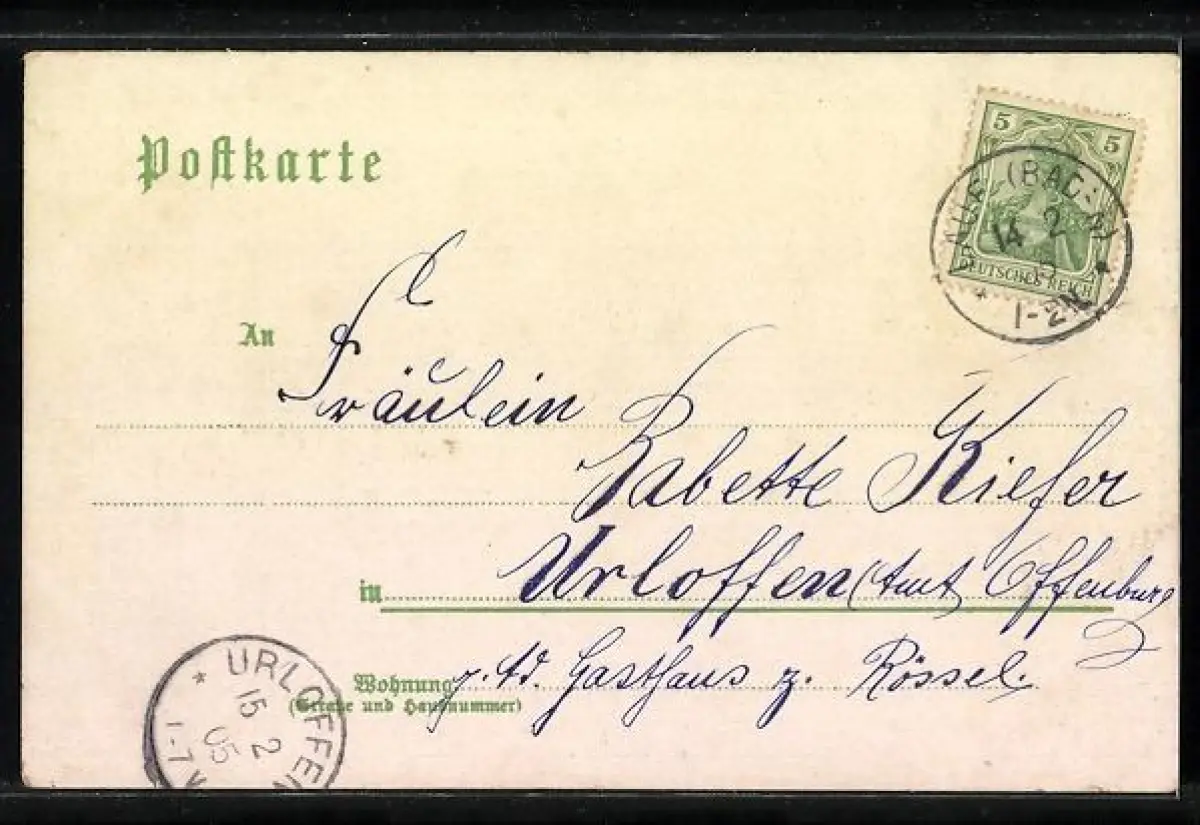 Postkarte
5 5
DEUTSCHES REICH
(BAD:
14 2
1-2N
An
Fräulein
Babette Kiefer
in Urloffen (Amt Offenburg
Gasthaus z. Rössel.
Wohnung
(Straße und Hausnummer)
* URLOFFEN
15 2 05
1-7V